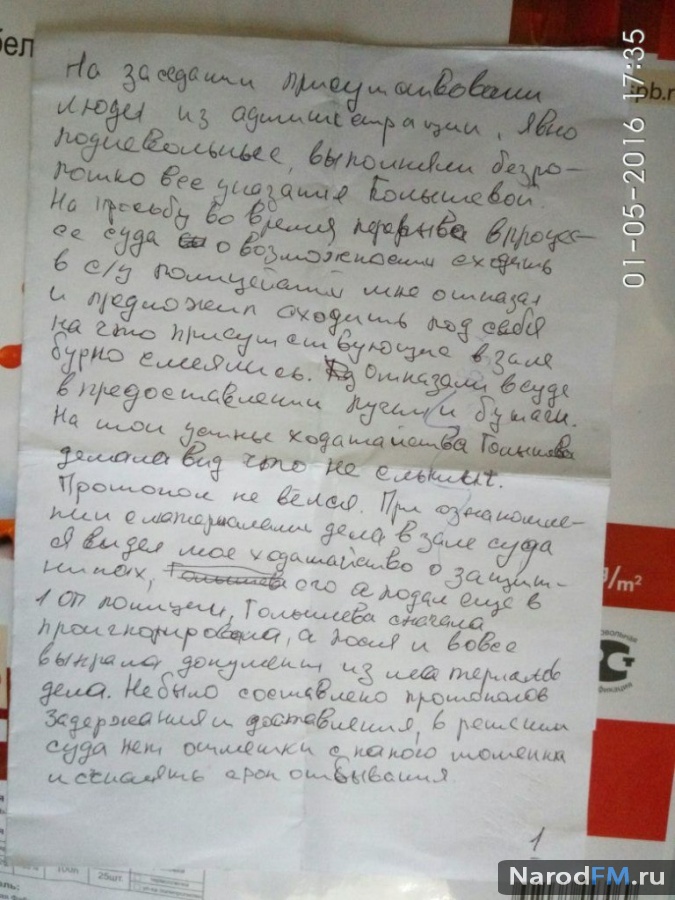 бел
На заседании присутствовали
люди из администрации, явно
подневольные, выполняли безро-
потно все указания Голышевой.
На просьбу во время перерыва в процес-
се суда о возможности сходить
в с/у полицейский мне отказал
и предложил сходить под себя
на что присутствующие в зале
бурно смеялись. Отказали в суде
в предоставлении ручки и бумаги.
На мои устные ходатайства Голышева
делала вид что не слышит.
Протокол не вёлся. При ознакомле-
нии с материалами дела в зале суда
я видел мое ходатайство о защит-
никах, его я подал еще в
1 от полиции, Голышева сначала
проигнорировала, а после и вовсе
выкрала документ из материалов
дела. Не было составлено протоколов
задержания и доставления, в решении
суда нет отметки с какого момента
исчислять срок отбывания.
1
01-05-2016 17:35
ipb.r
g/m²
100л
25шт.
NarodFM.ru